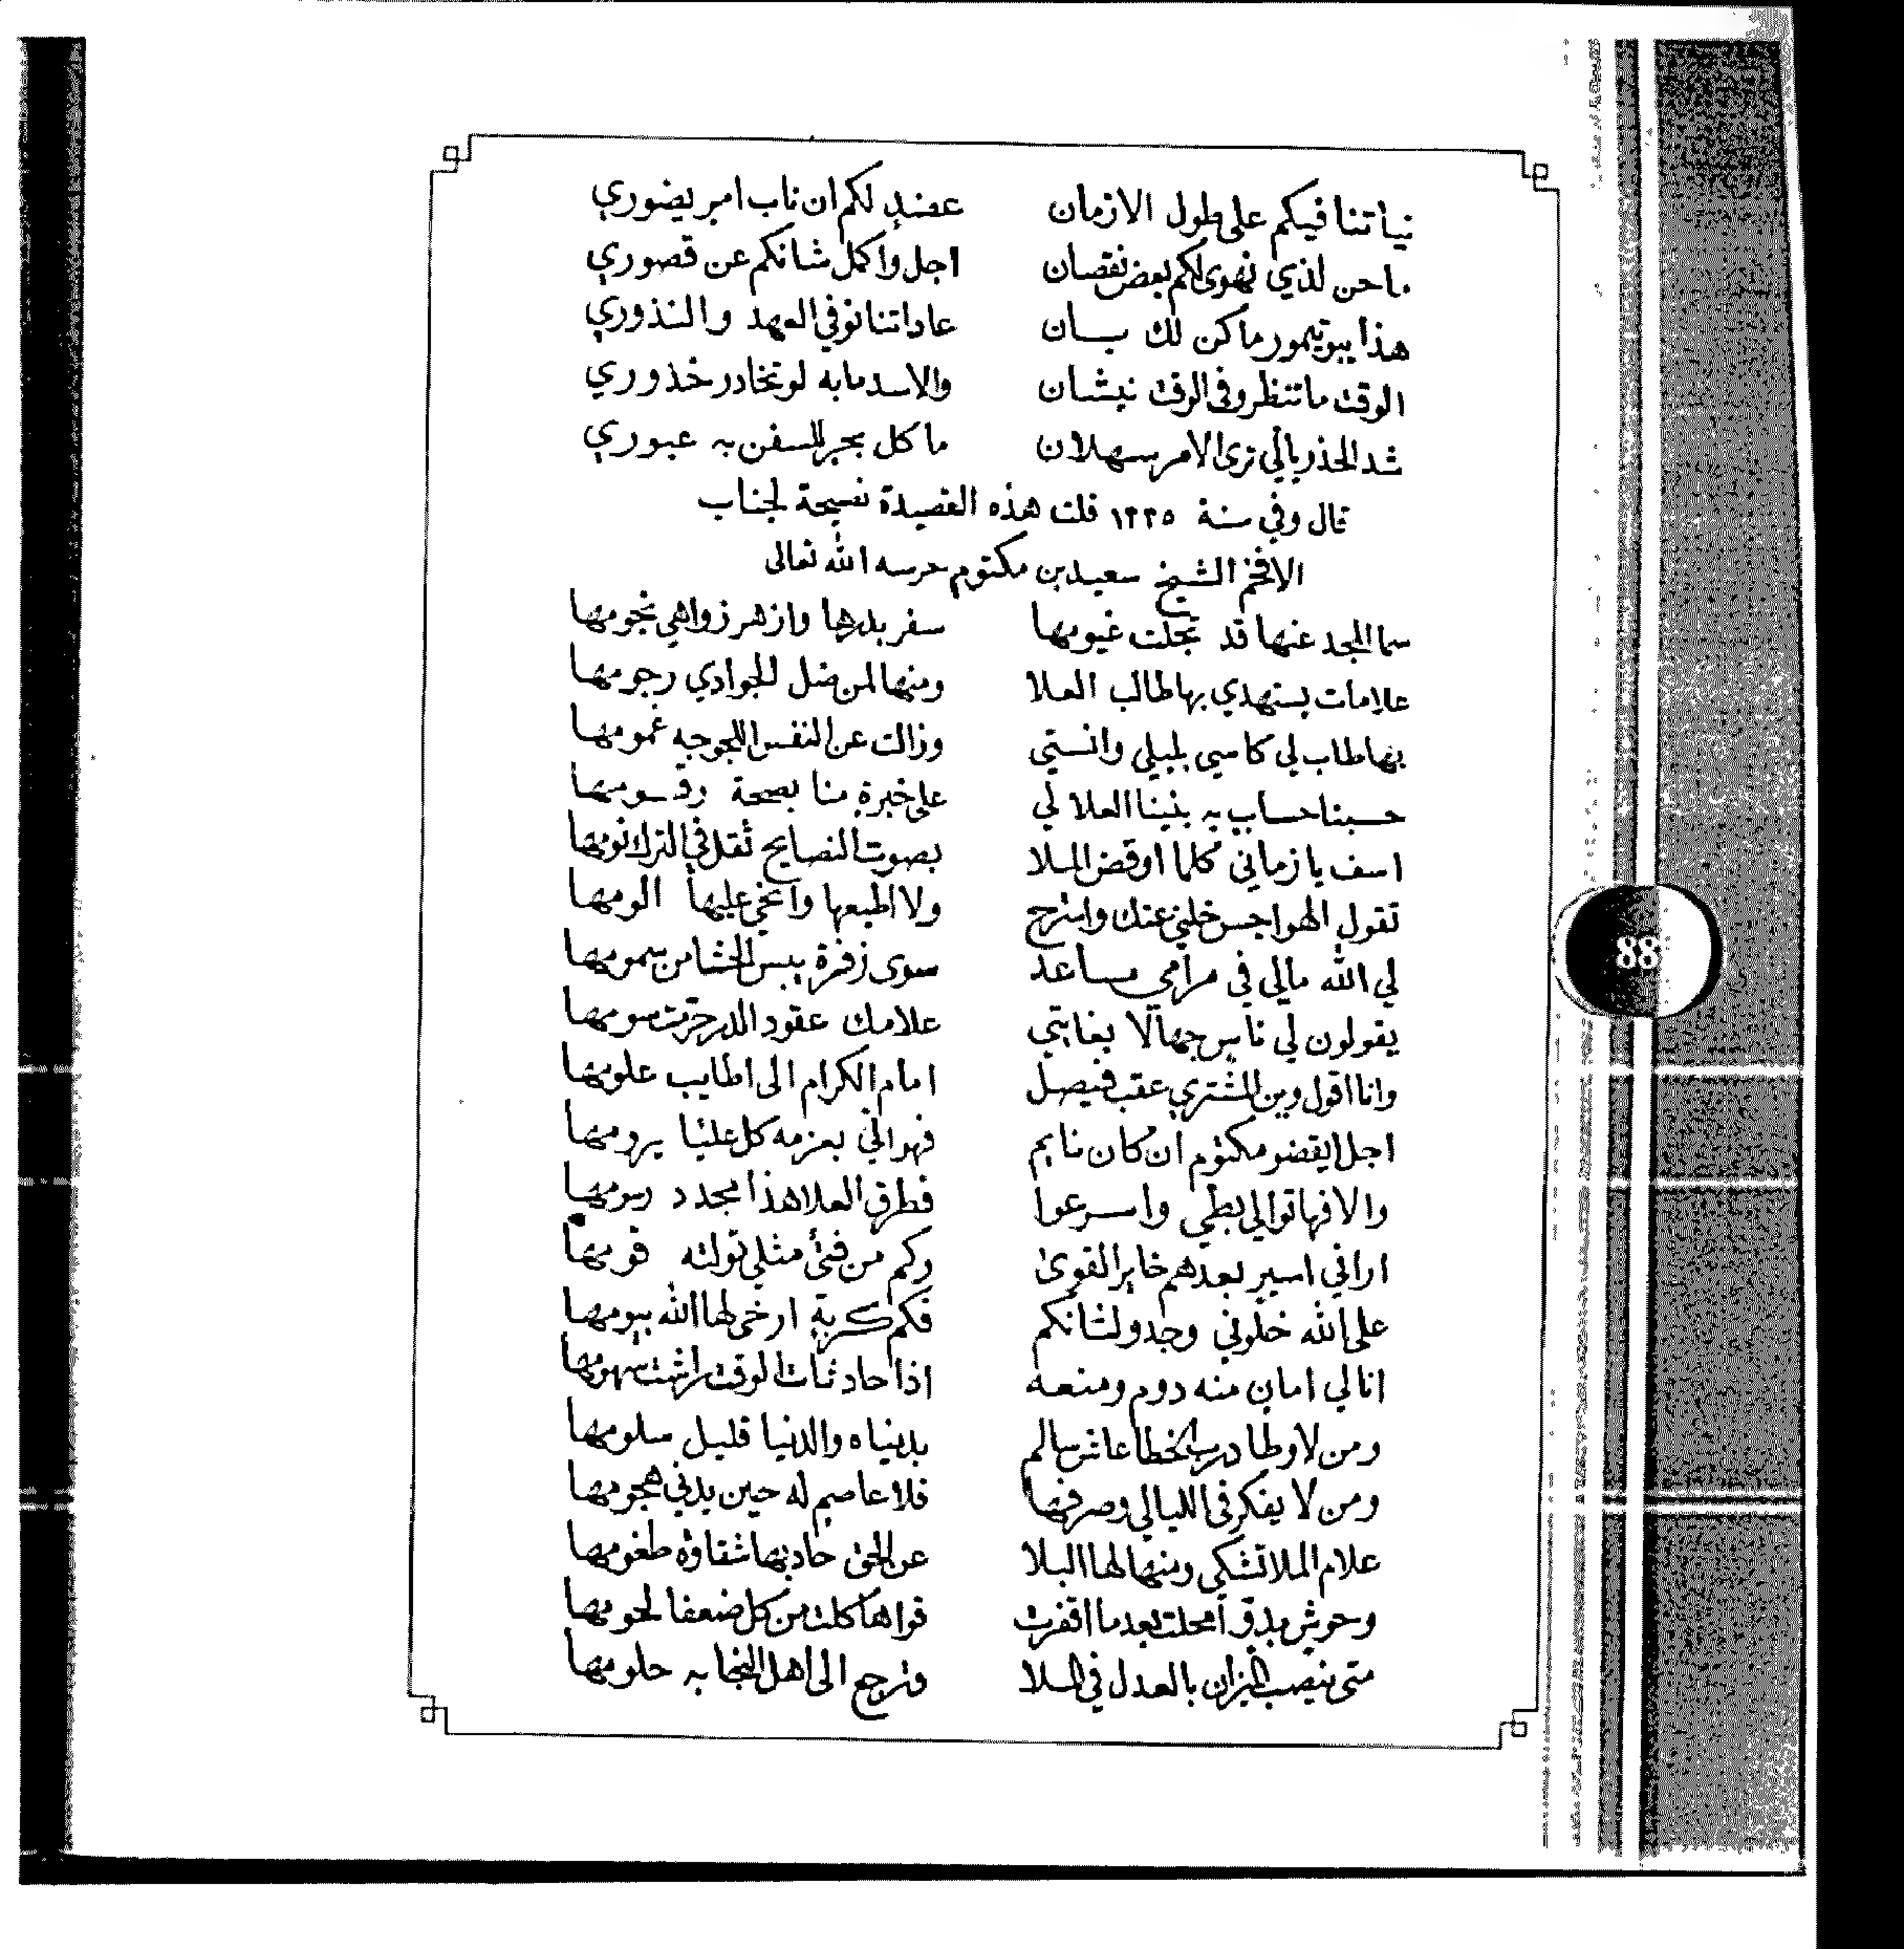 نياتنا فيكم على طول الازمان عضندٍ لكم ان ناب امر يضوري
ماحن لذي نهوى لكم بعض نقصان اجل واكمل شانكم عن قصوري
هذا يبو تيمور ماكن لك بان عاداتنا نوفي العهد والنذوري
الوقت ما تنظر وفى الوقت نيشان والاسد مابه لو تخادر خذوري
شد الحذر يالي ترى الامر سهلان ما كل بحر للسفن به عبوري
قال وفي سنة ١٣٣٥ قلت هذه القصيدة نصيحة لجناب
الافخم الشيخ سعيد بن مكتوم حرسه الله تعالى
سما المجد عنها قد تجلت غيومها سفر بدرها وازهر زواهي نجومها
علامات يستهدي بها طالب العلا ومنها لمن ضل الجوادي رجومها
بها طاب لي كاسي بليلي وانستي وزالت عن النفس اللجوجيه غمومها
حسبنا حساب به بنينا العلا لي على خبرة منا بصحة رقومها
اسف يا زماني كلما اوقض الملا بصوت النصايح ثقل في الترك نومها
تقول الهواجس خلني عنك واسترح ولا اطيعها وانخي عليها الومها
لي الله مالي في مرامي مساعد سوى زفرة يبس الحشا من سمومها
يقولون لي ناس جهالا بغايتي علامك عقود الدر حرت سومها
وانا اقول وين المشتري عقب فيصل امام الكرام الى اطايب علومها
اجل ايقضو مكتوم ان كان نايم فهو الي بعزمه كل عليا يرومها
والا فهاتوا لي بطي واسرعوا فطرق العلا هذا مجدد رسومها
اراني اسير بعدهم خاير القوى وكم من فتى مثلي تولته قومها
على الله خلوني وجدو لشانكم فكم كربةٍ ارخى لها الله بيومها
انا لي امان منه دوم ومنعه اذا حادثات الوقت راشت سهومها
ومن لا وطا درب الخطا عاش سالم بدنياه والدنيا قليل سلومها
ومن لا يفكر فى الليالي وصرفها فلا عاصم له حين يدني هجومها
علام الملا تشكى ومنها لها البلا عن الحق حاد بها شقاوة طغومها
وحوش بدق أمحلت بعد ما اقفرت قواها كلت من كل ضعفا لحومها
متى ينصب الميزان بالعدل في الملا وترجع الى اهل النجابه حلومها
88